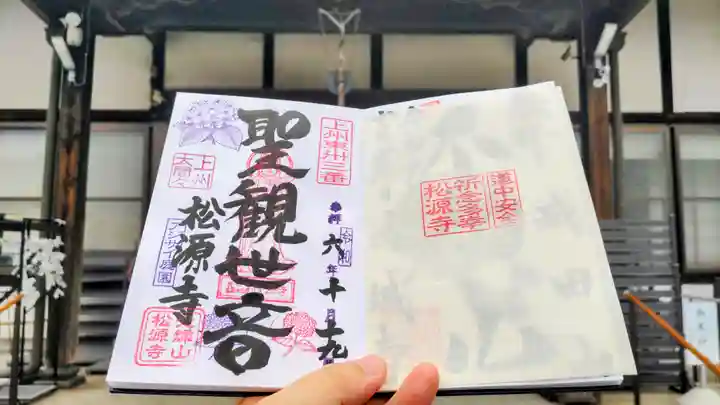 上州東州三番
奉拝
令和
六年十月十九
聖観世音
松源寺
上州
大間々
アジサイ庭園
松源寺
道中安全
祈念多幸
松源寺